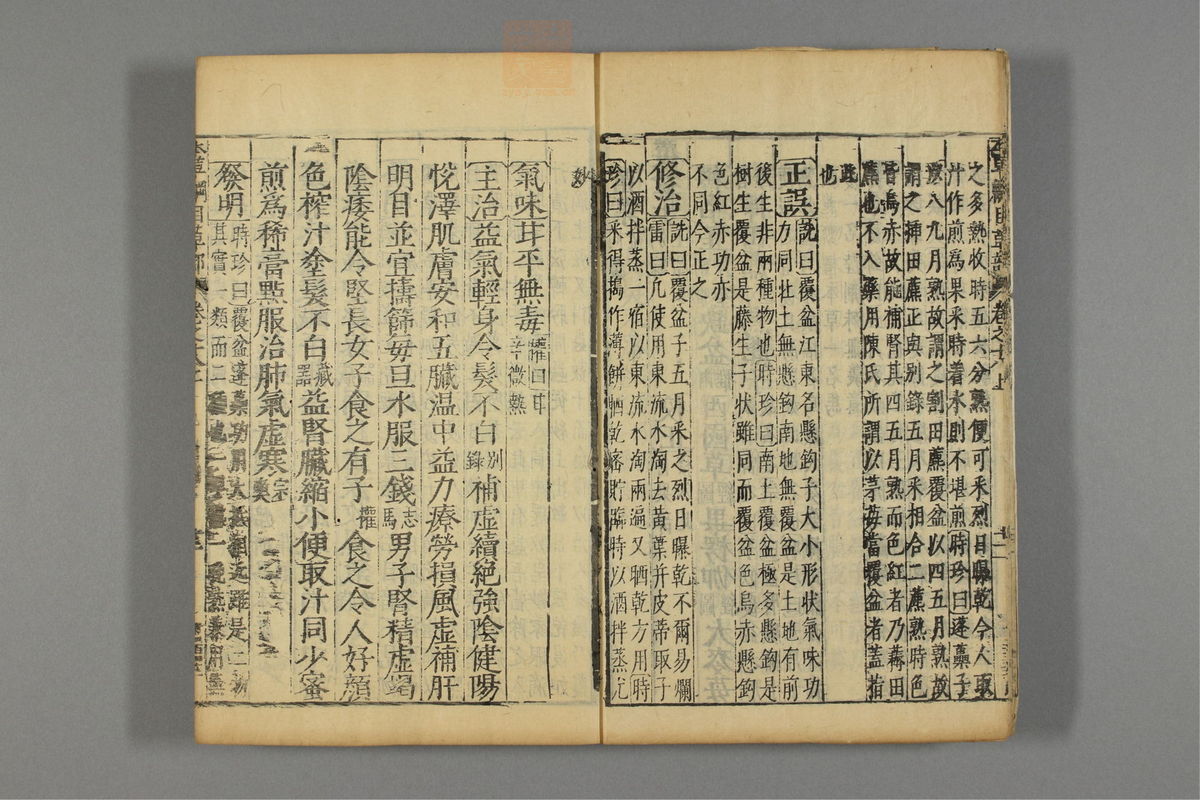 本草綱目草部 卷之十八上
之多熟收時五六分熟便可采烈日曝乾今人取
汁作煎爲果采時著水則不堪煎時珍曰蓬蘽子
以八九月熟故謂之割田藨覆盆以四五月熟故
謂之插田藨正與別錄五月采相合二藨熟時色
皆烏赤故能補腎其四五月熟而色紅者乃薅田
藨也不入藥用陳氏所謂以茅莓當覆盆者蓋指
此
也
正誤詵曰覆盆江東名懸鈎子大小形狀氣味功
力同北土無懸鈎南地無覆盆是土地有前
後生非兩種物也時珍曰南土覆盆極多懸鈎是
樹生覆盆是藤生子狀雖同而覆盆色烏赤懸鈎
色紅赤功亦
不同今正之
修治詵曰覆盆子五月采之烈日曝乾不爾易爛
雷曰凡使用東流水淘去黄葉并皮蒂取子
以酒拌蒸一宿以東流水淘兩遍又晒乾方用時
珍曰采得搗作薄餅晒乾密貯臨時以酒拌蒸尤
妙
氣味甘平無毒權曰甘辛微熱
主治益氣輕身令髮不白別錄補虛續絕強陰健陽
悅澤肌膚安和五臟温中益力療勞損風虛補肝
明目並宜擣篩每旦水服三錢馬志男子腎精虛竭
陰痿能令堅長女子食之有子權食之令人好顔
色榨汁塗髮不白藏器益腎臟縮小便取汁同少蜜
煎爲稀膏點服治肺氣虛寒宗奭
發明時珍曰覆盆蓬蘽功用大抵相近雖是二物
其實一類而二
本草綱目草部 卷之十八上